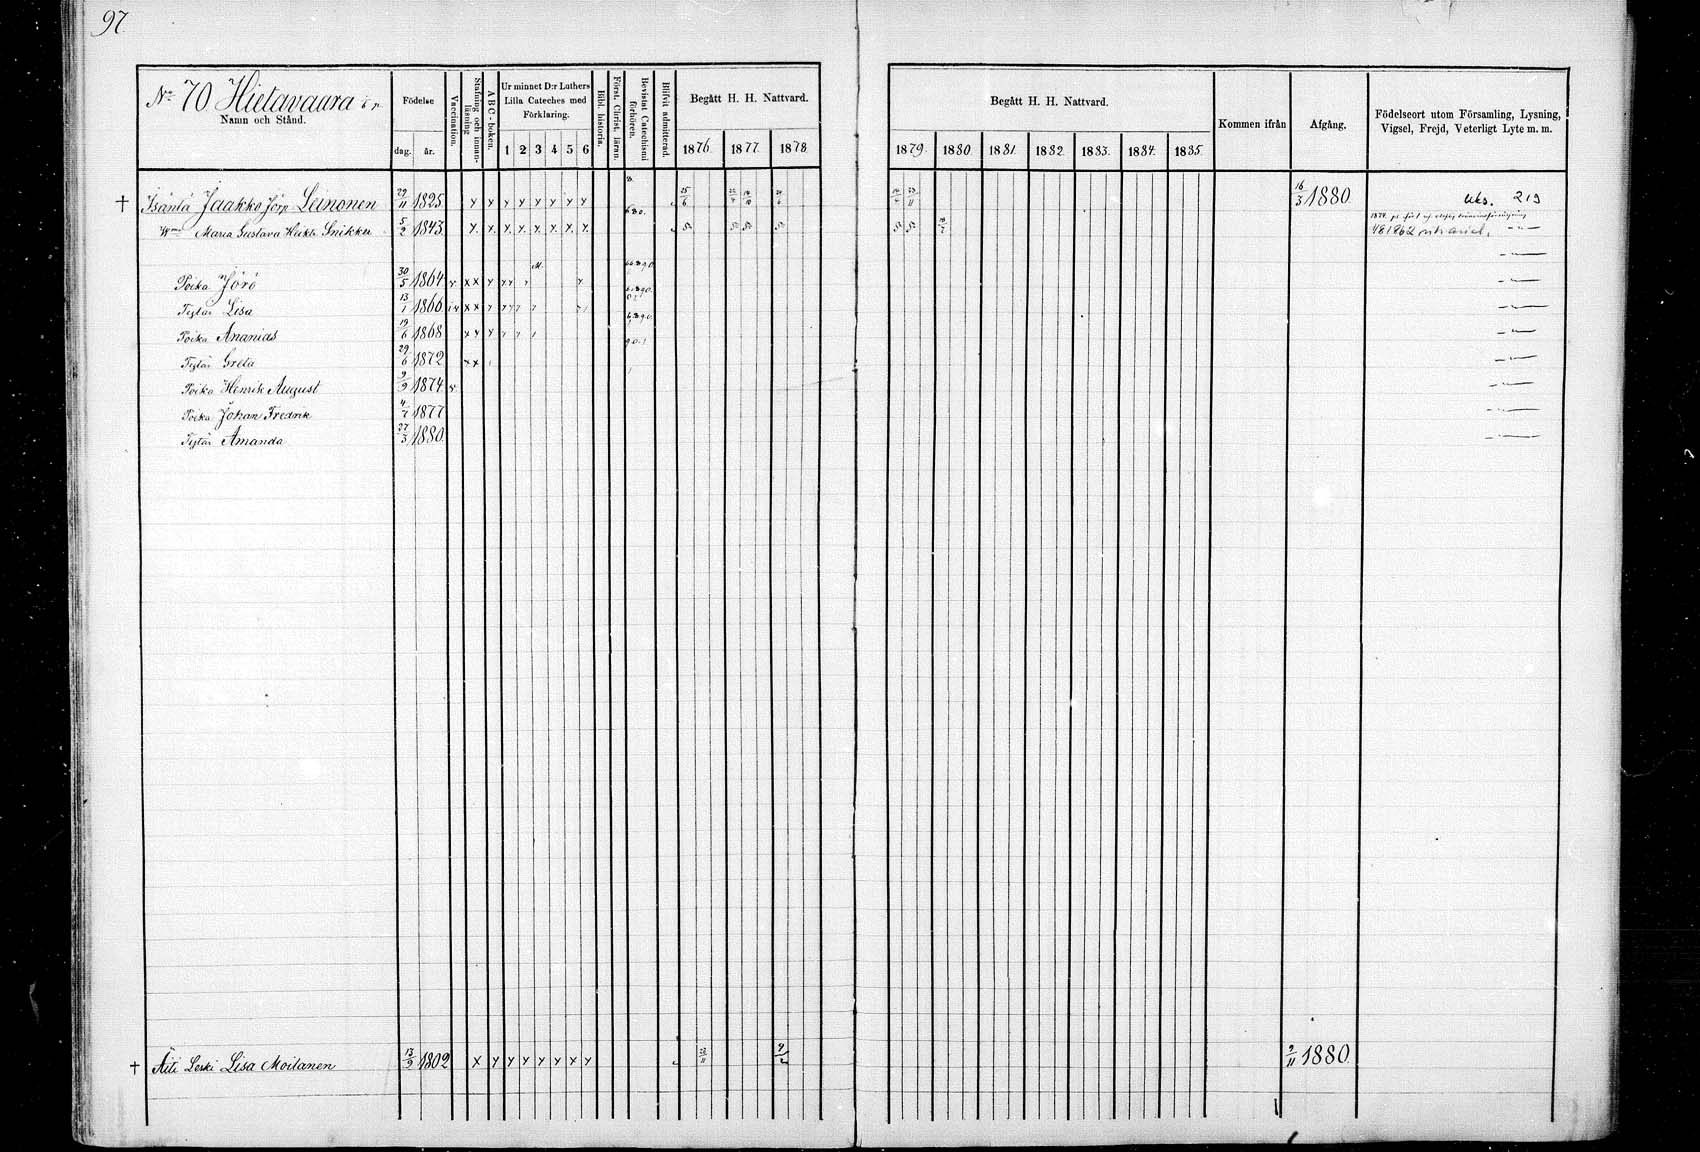 97
No 70 Hietavaara
Namn och Stånd.
Födelse
dag. år.
Vaccination.
Stafning och innan-läsning
A B C-boken.
Ur minnet D:r Luthers
Lilla Cateches med
Förklaring.
1 2 3 4 5 6
Bibl. historia.
Först. Christ. läran.
Bevistat Catechismi förhören.
Blifvit admitterad.
Begått H. H. Nattvard.
1876. 1877. 1878.
Begått H. H. Nattvard.
1879. 1880. 1881. 1882. 1883. 1884. 1885.
Kommen ifrån
Afgång.
Födelseort utom Församling, Lysning,
Vigsel, Frejd, Veterligt Lyte m. m.
† Isäntä Jaakko Jörp Leinonen 29/11 1825 x x x x x x x x 25/6 16/3 1880 uks. 219
Maria Gustava Heikt. Snikker 5/2 1843 x x x x x x x x
Poika Jörö 30/5 1864
Tytär Lisa 13/1 1866
Poika Ananias 19/6 1868
Tytär Greta 29/6 1872
Poika Henrik August 9/9 1874
Poika Johan Fredrik 4/7 1877
Tytär Amanda 27/3 1880
† Äiti Leski Lisa Moilanen 13/9 1802 x x x x x x x x 9/11 1880.